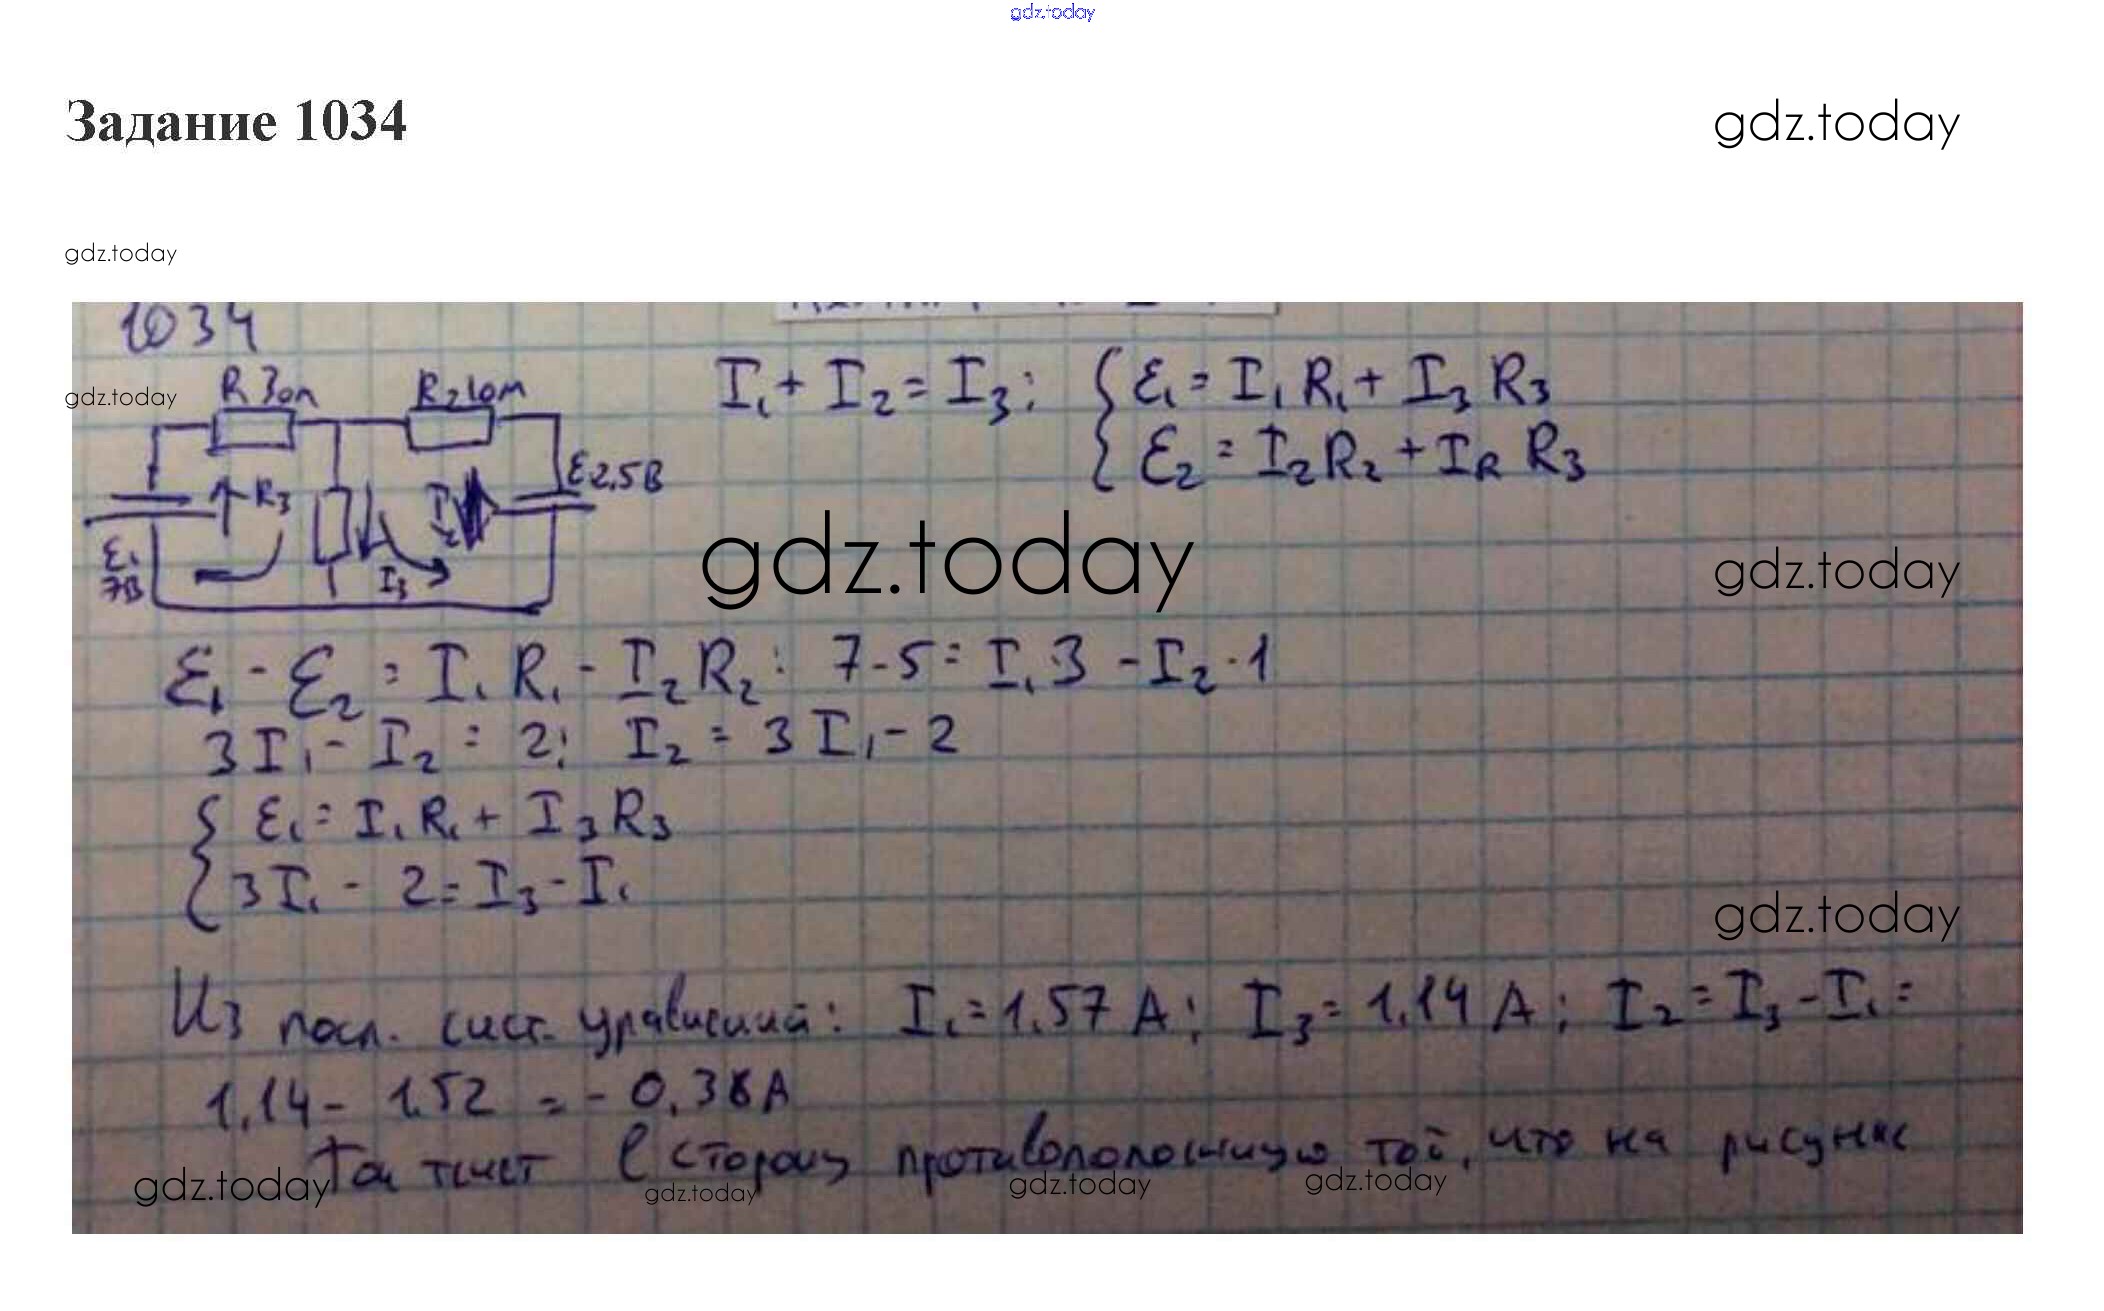 gdz.today
Задание 1034
gdz.today
gdz.today
1034
gdz.today
R 3ом
R₂ 1ом
I₁ + I₂ = I₃; { ε₁ = I₁ R₁ + I₃ R₃
ε₂ = I₂ R₂ + I_R R₃
R₃
I₂
ε2.5В
ε₁
7В
I₃
gdz.today
gdz.today
ε₁ - ε₂ = I₁ R₁ - I₂ R₂; 7-5 = I₁ 3 - I₂ · 1
3 I₁ - I₂ = 2; I₂ = 3 I₁ - 2
{ ε₁ = I₁ R₁ + I₃ R₃
3 I₁ - 2 = I₃ - I₁
gdz.today
Из посл. сист. уравнений: I₁ = 1.57 А; I₃ = 1.14 А; I₂ = I₃ - I₁ =
1.14 - 1.52 = - 0.38 А
Ток течет в сторону противоположную той, что на рисунке
gdz.today
gdz.today
gdz.today
gdz.today